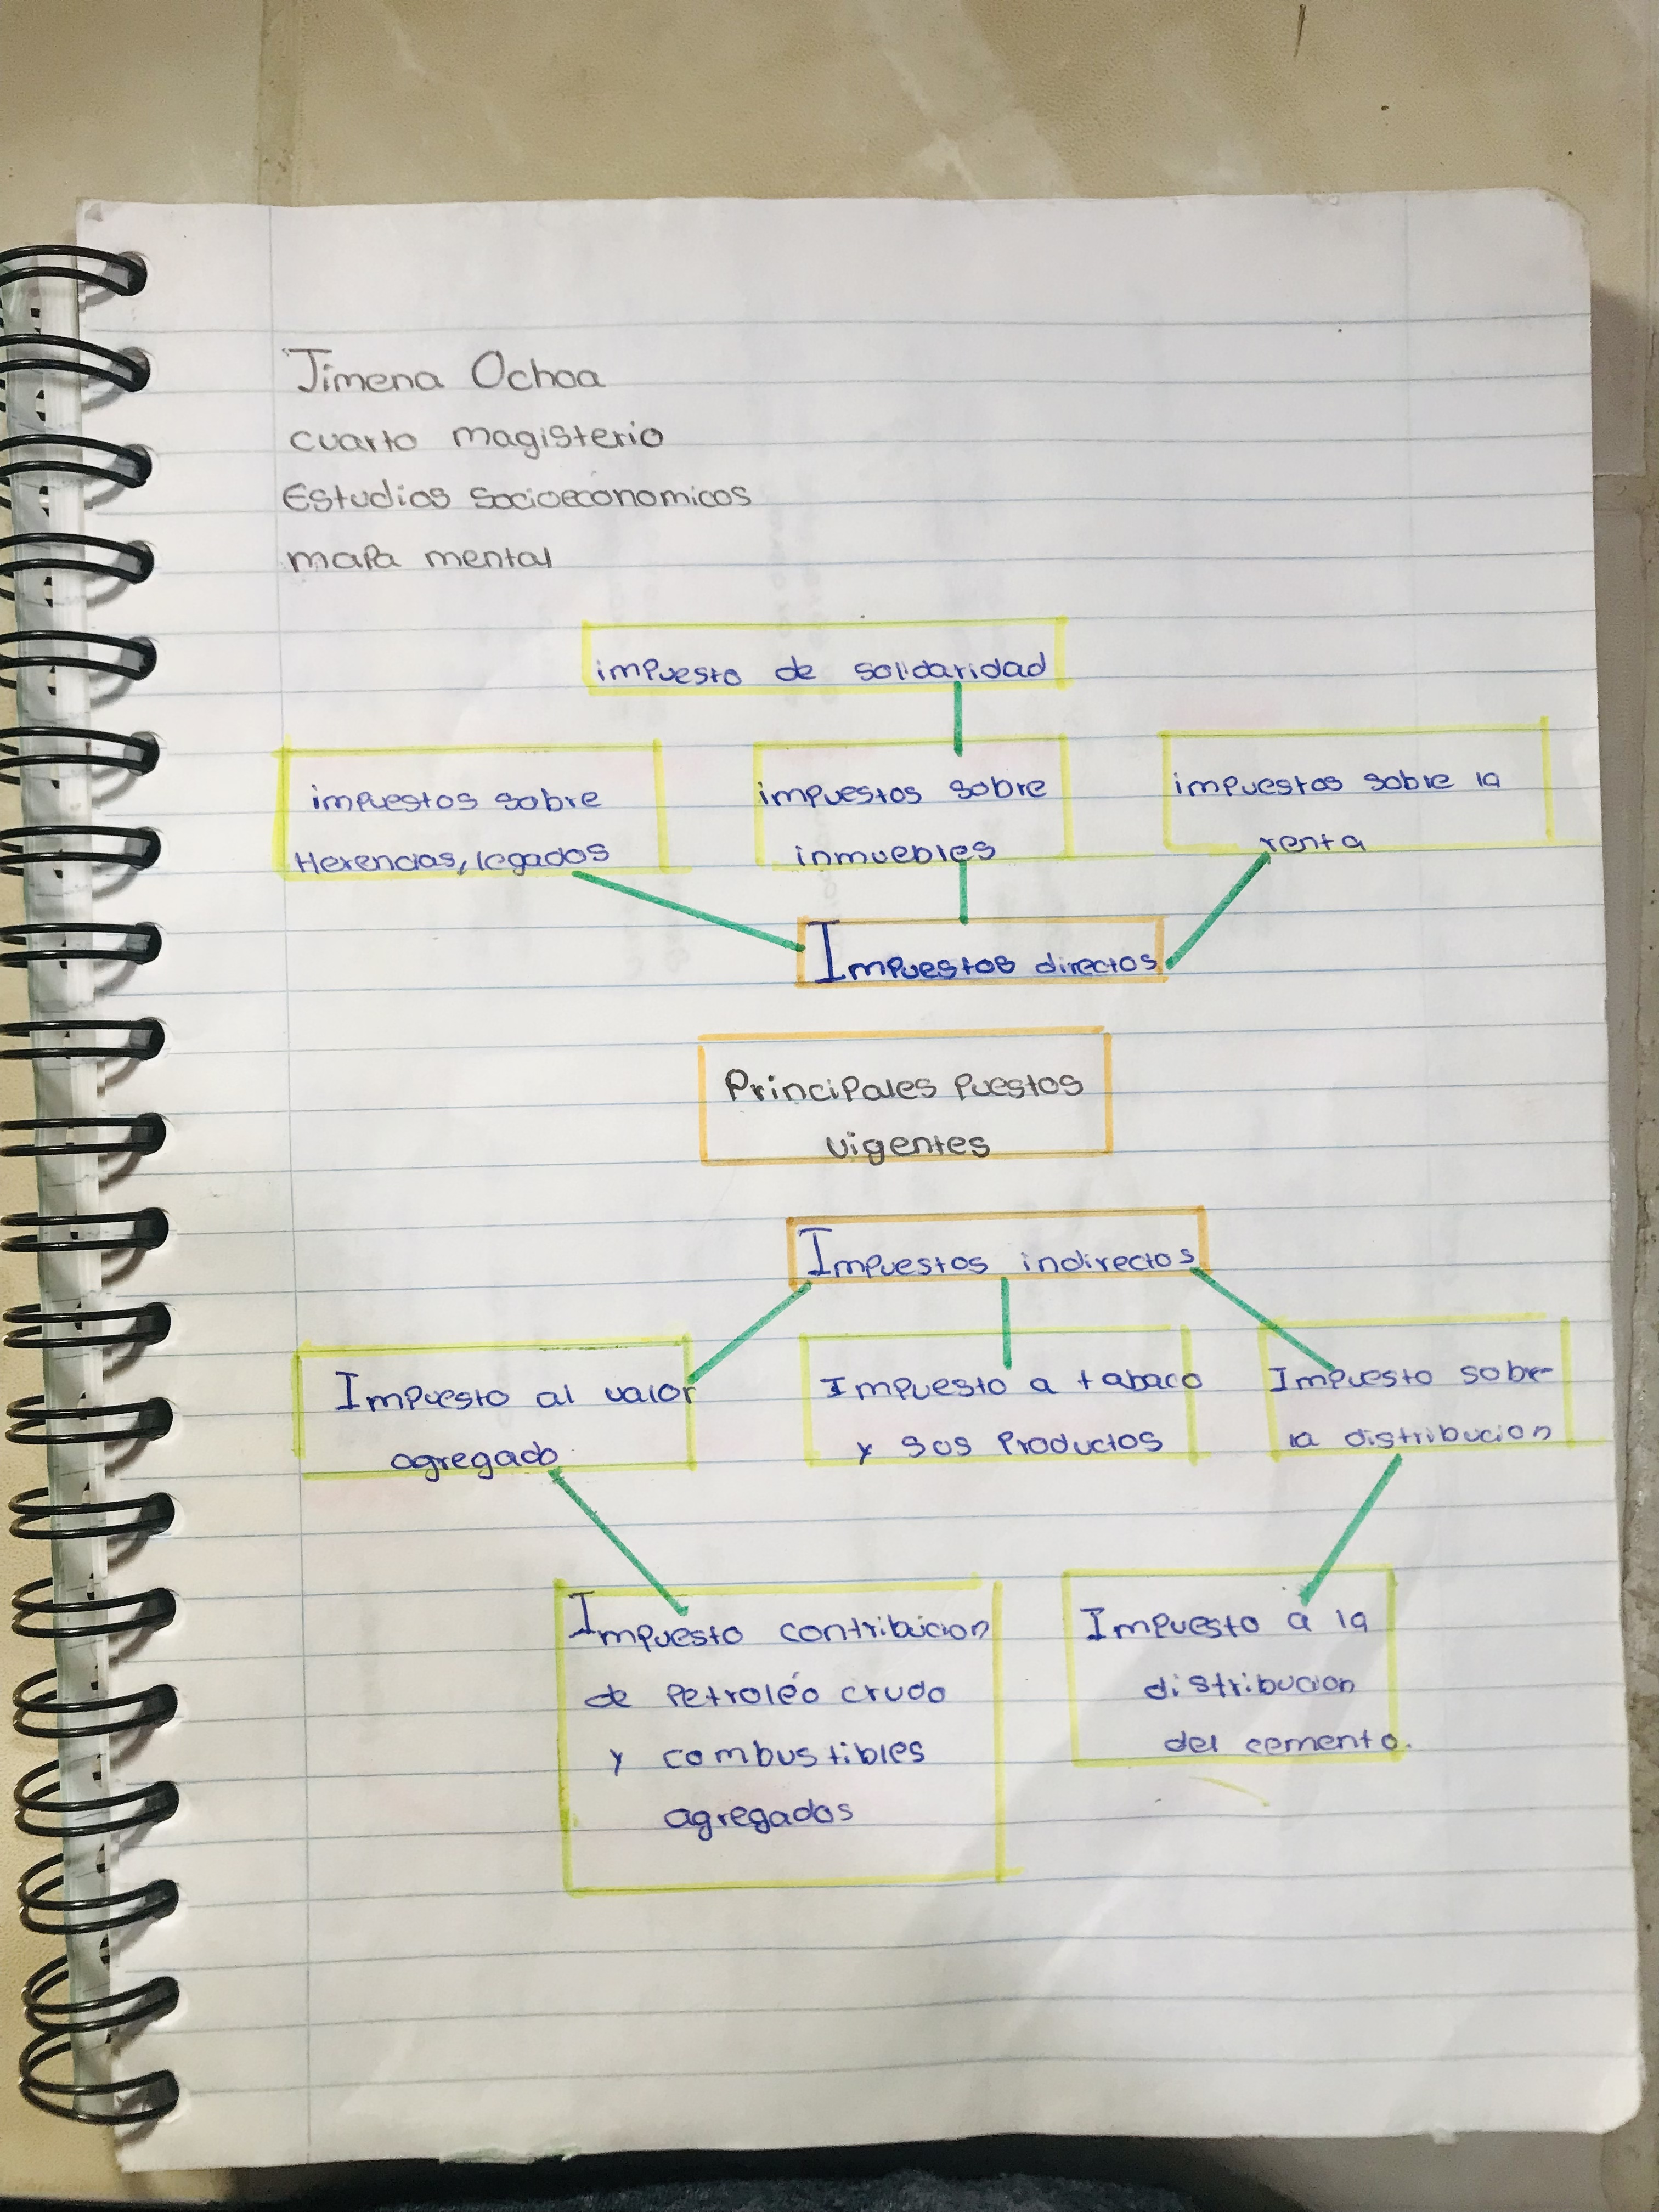 Jimena Ochoa
cuarto magisterio
Estudios Socioeconomicos
mapa mental
impuesto de solidaridad
impuestos sobre
Herencias, legados
impuestos sobre
inmuebles
impuestos sobre la
renta
Impuestos directos
Principales puestos
vigentes
Impuestos indirectos
Impuesto al valor
agregado
Impuesto a tabaco
y sos Productos
Impuesto sobre
la distribucion
Impuesto contribucion
de Petroléo crudo
y combustibles
agregados
Impuesto a la
distribucion
del cemento.